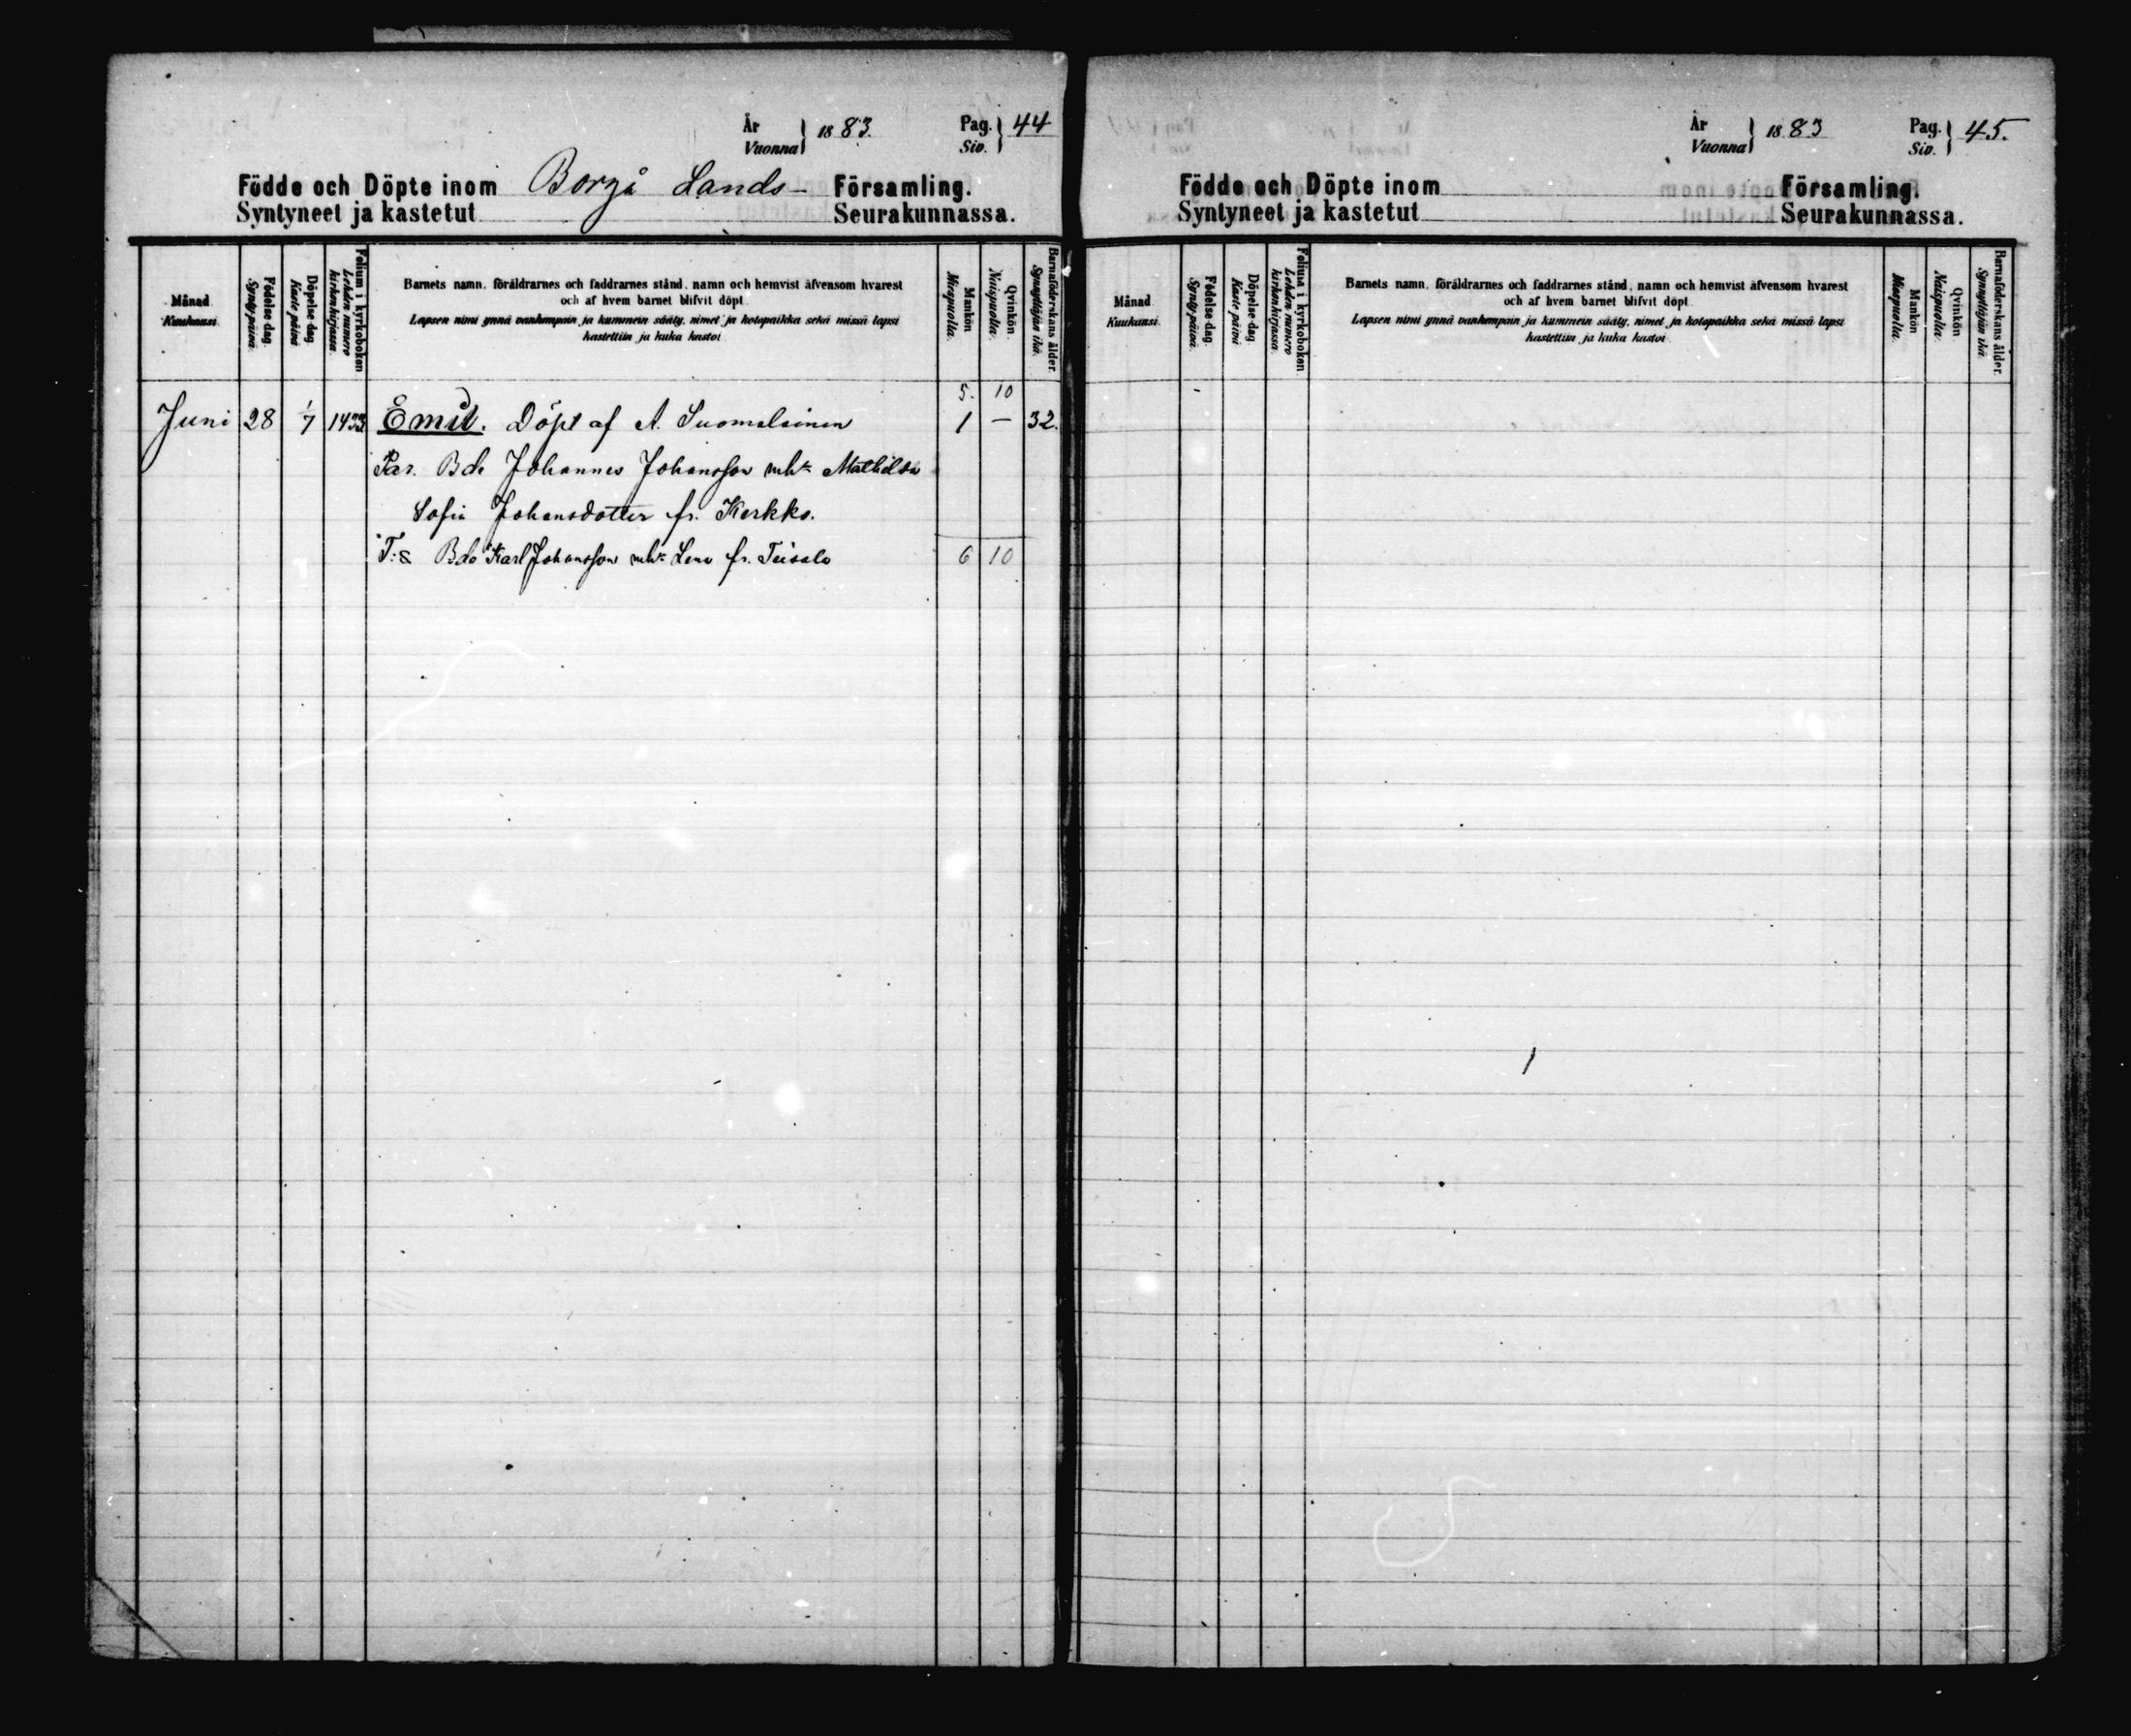 År Vuonna } 1883. Pag. Siv. } 44
Födde och Döpte inom Borgå Lands- Församling.
Syntyneet ja kastetut Seurakunnassa.
Månad Kuukausi
Födelse dag. Synty päivä.
Döpelse dag Kaste päivä
Folium i kyrkoboken Lehden numero kirkonkirjassa.
Barnets namn, föräldrarnes och faddrarnes stånd, namn och hemvist äfvensom hvarest
och af hvem barnet blifvit döpt.
Lapsen nimi ynnä vanhempain ja kummein sääty, nimet ja kotopaikka sekä missä lapsi
kastettiin ja kuka kastoi
Mankön Miespuolia.
Qvinkön. Naispuolia.
Barnaföderskans ålder. Synnyttäjän ikä.
5. 10
Juni 28 1/7 1433 Emil. Döpt af A. Suomalainen 1 — 32.
Par. Bde Johannes Johansson mht Mathilda
Sofia Johansdotter fr. Kerkko.
T:s Bde Karl Johansson mht Lena fr. Teisala 6 10
År Vuonna } 1883 Pag. Siv. } 45.
Födde och Döpte inom Församling.
Syntyneet ja kastetut Seurakunnassa.
Månad Kuukausi
Födelse dag. Synty päivä.
Döpelse dag Kaste päivä
Folium i kyrkoboken Lehden numero kirkonkirjassa.
Barnets namn, föräldrarnes och faddrarnes stånd, namn och hemvist äfvensom hvarest
och af hvem barnet blifvit döpt
Lapsen nimi ynnä vanhempain ja kummein sääty, nimet ja kotopaikka sekä missä lapsi
kastettiin ja kuka kastoi
Mankön Miespuolia.
Qvinkön Naispuolia.
Barnaföderskans ålder. Synnyttäjän ikä